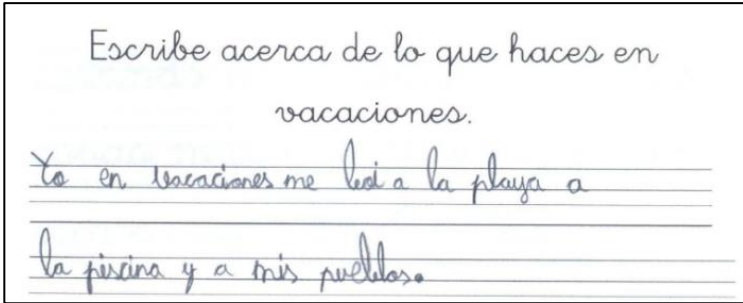 Escribe acerca de lo que haces en
vacaciones.
Yo en vacaciones me boi a la playa a
la piscina y a mis pueblos.